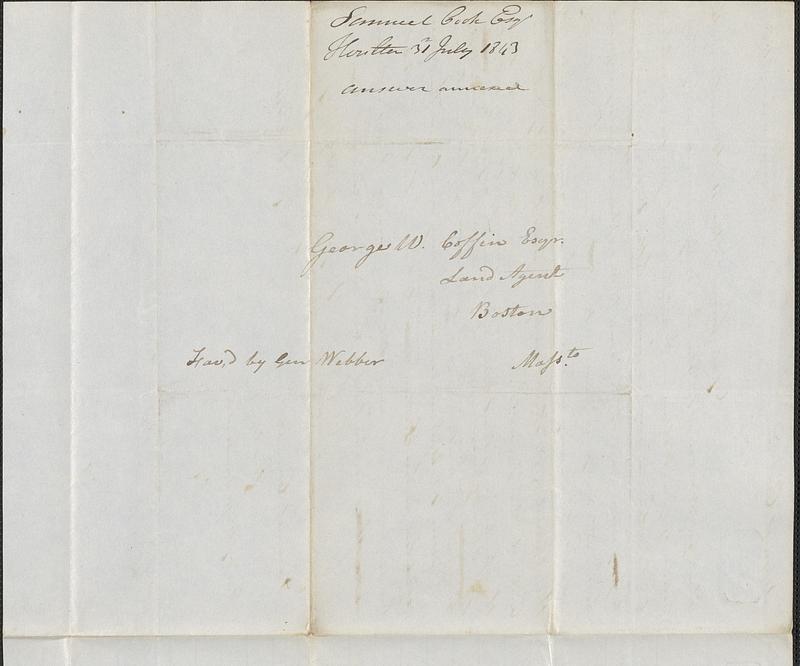 Samuel Cook Esq
Houlton 31 July 1843
answer annexed
George W. Coffin Esqr.
Land Agent
Boston
Fav,d by Gen Webber Massts.